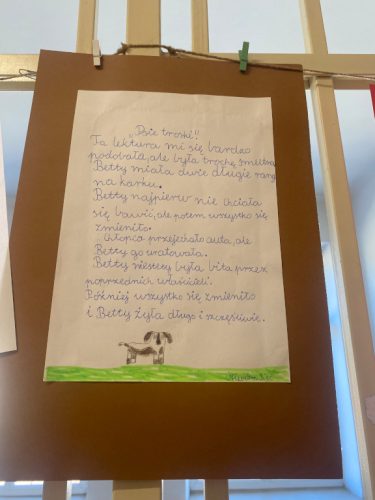 "Psie troski"
Ta lektura mi się bardzo
podobała, ale była trochę smutna.
Betty miała dwie długie rany
na karku.
Betty najpierw nie chciała
się bawić, ale potem wszystko się
zmieniło.
Chłopca przejechało auto, ale
Betty go uratowała.
Betty niestety była bita przez
poprzednich właścicieli.
Później wszystko się zmieniło
i Betty żyła długo i szczęśliwie.